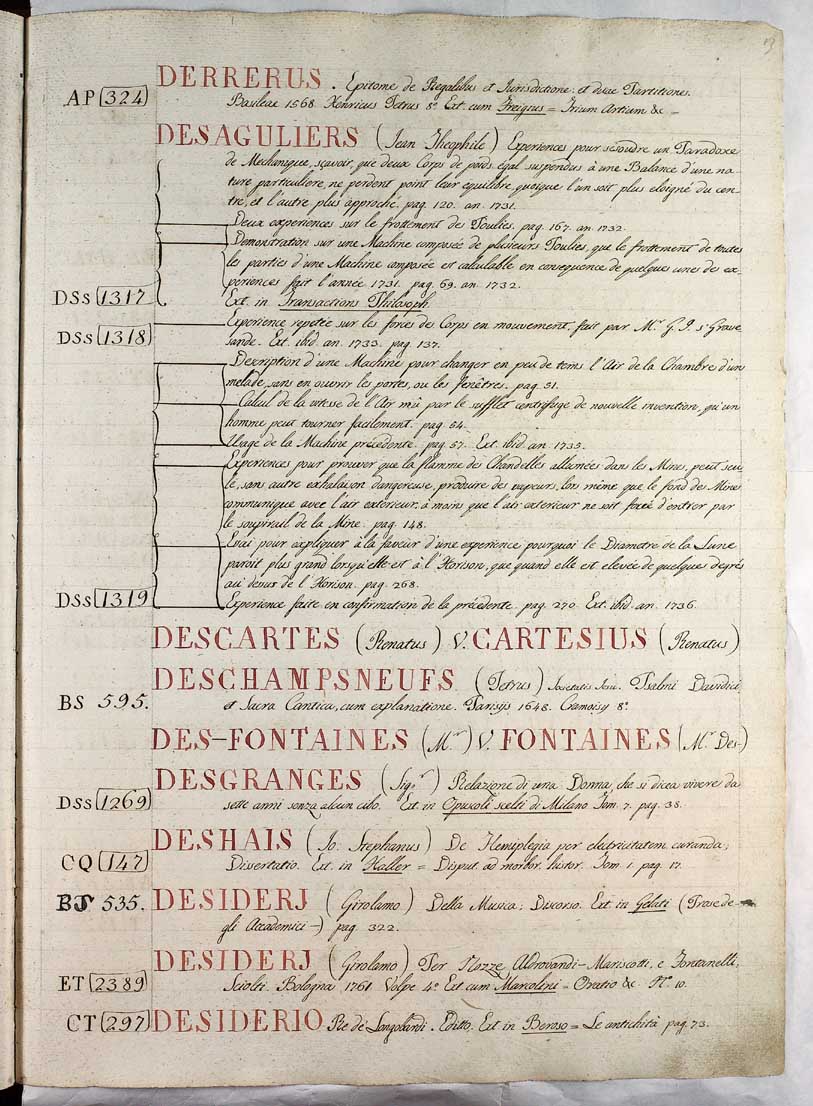 19
DERRERUS . Epitome de Regalibus et Jurisdictione: et duae Partitiones.
AP 324 Basileae 1568. Henricus Petrus 8.° Ext. cum Freigius = Trium Artium &c –
DESAGULIERS (Jean Theophile) Experiences pour résoudre un Paradoxe
de Mechanique, sçavoir, que deux Corps de poids égal suspendus à une Balance d'une na-
ture particuliere, ne perdent point leur équilibre, quoique l'un soit plus eloigné du cen-
tre, et l'autre plus approché. pag. 120. an. 1731.
Deux experiences sur le frottement des Poulies. pag. 167. an. 1732.
Demonstration sur une Machine composée de plusieurs Poulies, que le frottement de toutes
les parties d'une Machine composée est calculable en consequence de quelques unes des ex-
periences fait l'année 1731. pag. 69. an. 1732.
DSs 1317 Ext. in Transactions Philosoph.
Experience repetée sur les forces des Corps en mouvement, fait par M.r G. J. s'Grave
DSs 1318 sande. Ext. ibid. an. 1733. pag. 137.
Description d'une Machine pour changer en peu de tems l'Air de la Chambre d'un
malade, sans en ouvrir les portes, ou les fenêtres. pag. 51.
Calcul de la vitesse de l'Air mû par le sufflet centrifuge de nouvelle invention, qu'un
homme peut tourner facilement. pag. 54.
Usage de la Machine précédente. pag. 57. Ext. ibid. an. 1735.
Experiences pour prouver que la flamme des Chandelles allumées dans les Mines, peut seu-
le, sans autre exhalaison dangereuse, produire des vapeurs, lors même que le fond des Mines
communique avec l'air exterieur, à moins que l'air exterieur ne soit forcé d'entrer par
le soupirail de la Mine. pag. 148.
Essai pour expliquer à la faveur d'une experience pourquoi le Diametre de la Lune
paroit plus grand lorsqu'elle est à l'Horison, que quand elle est elevée de quelques degrés
au dessus de l'Horison. pag. 268.
DSs 1319 Experience faite en confirmation de la précedente. pag. 270. Ext. ibid. an. 1736.
DESCARTES (Renatus) V. CARTESIUS (Renatus)
DESCHAMPSNEUFS (Petrus) Societatis Jesu. Psalmi Davidici
BS 595. et Sacra Cantica, cum explanatione. Parisijs 1648. Cramoisy 8.°
DES-FONTAINES (M.r) V. FONTAINES (M.r Des-)
DESGRANGES (Sig.r) Relazione di una Donna, che si dicea vivere da
DSs 1269 sette anni senza alcun cibo. Ext. in Opuscoli scelti di Milano Tom. 7. pag. 38.
DESHAIS (Jo. Stephanus) De Hemiplegia per electricitatem curanda;
CQ 147 Dissertatio. Ext. in Haller = Disput. ad morbor. histor. Tom. 1. pag. 17.
BS 535. DESIDERJ (Girolamo) Della Musica; Discorso. Ext. in Gelati (Prose de-
gli Accademici –) pag. 322.
DESIDERJ (Girolamo) Per Nozze Aldrovandi-Mariscotti, e Fontanelli;
ET 2389 Sciolti. Bologna 1761. Volpe 4.° Ext. cum Marcolini = Oratio &c. N.° 10.
CT 297 DESIDERIO Re de' Longobardi. Editto. Ext. in Beroso = Le antichità pag. 73.